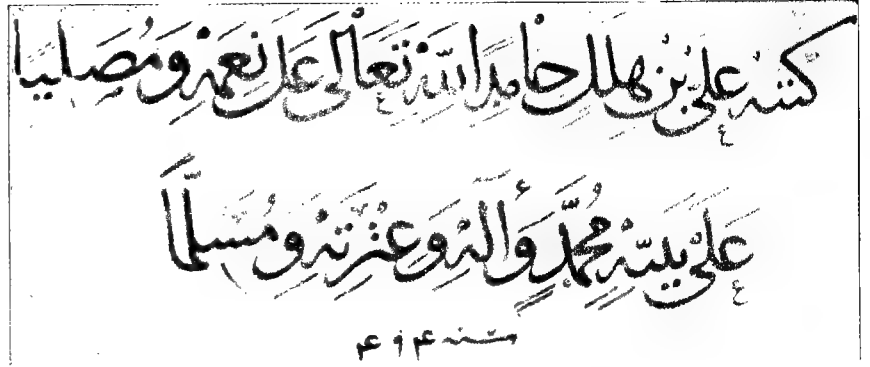 كَتَبَهُ عَلِيُّ بْنُ هِلَالٍ حَامِدًا لِلَّهِ تَعَالَى عَلَى نِعَمِهِ وَمُصَلِّيًا
عَلَى نَبِيِّهِ مُحَمَّدٍ وَآلِهِ وَعِتْرَتِهِ وَمُسَلِّمًا
سنه